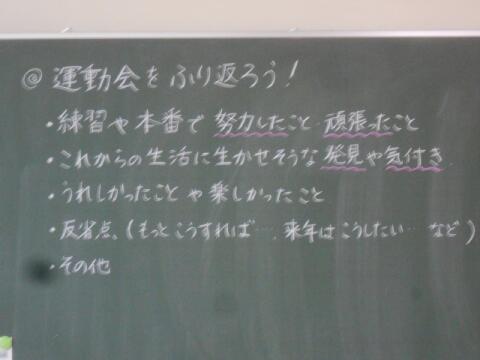 ◎運動会をふり返ろう!
・練習や本番で努力したこと 頑張ったこと
・これからの生活に生かせそうな発見や気付き
・うれしかったことや楽しかったこと
・反省点、(もっとこうすれば…、来年はこうしたい…など)
・その他